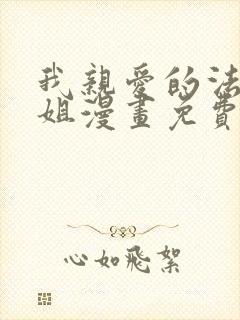 我親愛的法
姐漫畫免費
心如飛絮